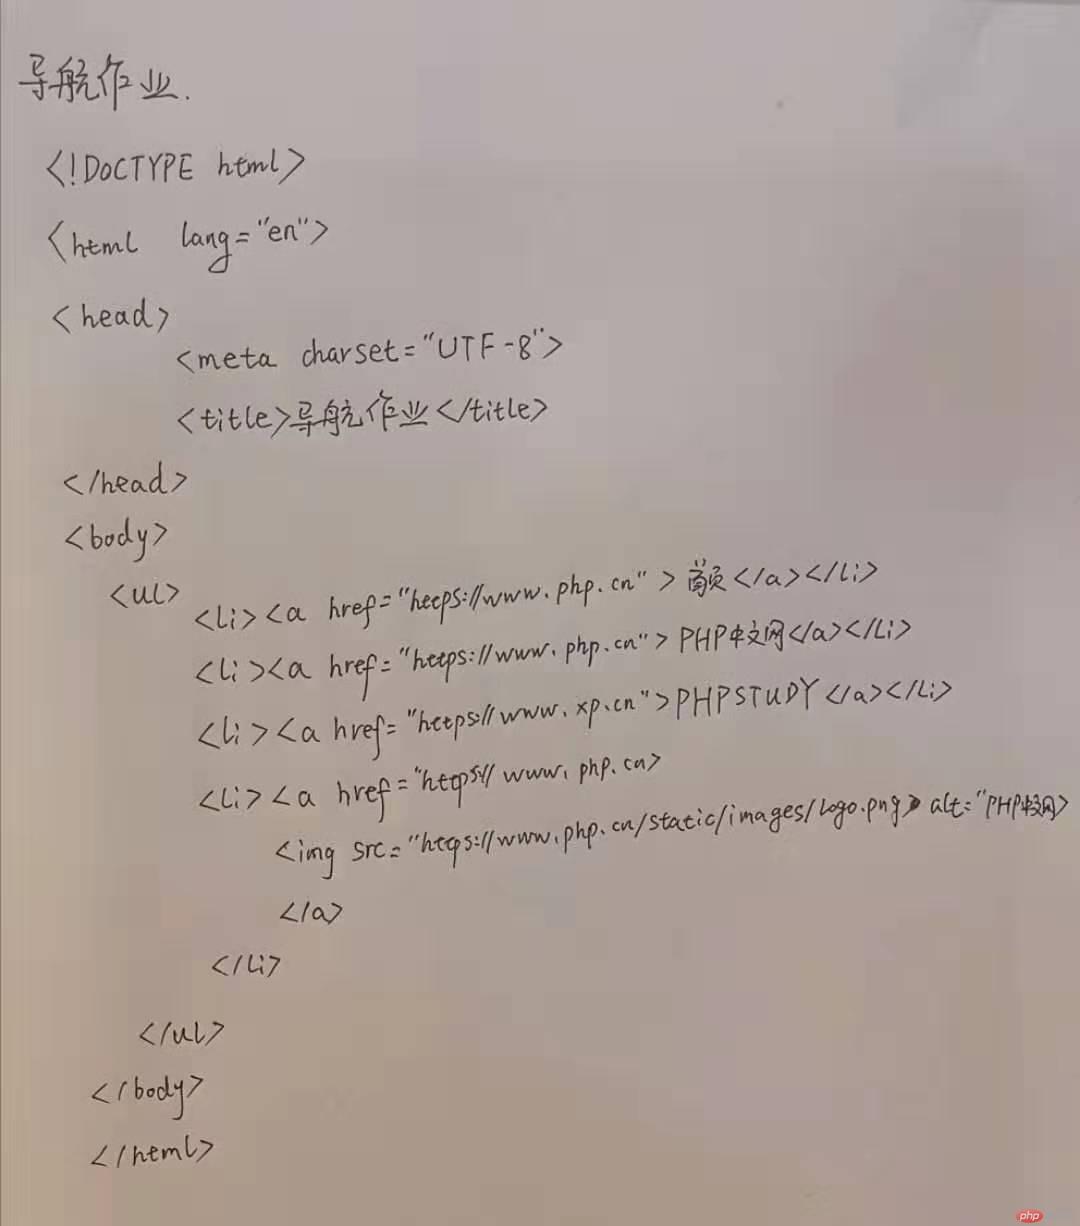 导航作业.
<!DOCTYPE html>
<html lang="en">
<head>
<meta charset="UTF-8">
<title>导航作业</title>
</head>
<body>
<ul>
<li><a href="https://www.php.cn">首页</a></li>
<li><a href="https://www.php.cn">PHP中文网</a></li>
<li><a href="https://www.xp.cn">PHPSTUDY</a></li>
<li><a href="https://www.php.cn>
<img src="https://www.php.cn/static/images/logo.png" alt="PHP中文网>
</a>
</li>
</ul>
</body>
</html>
php